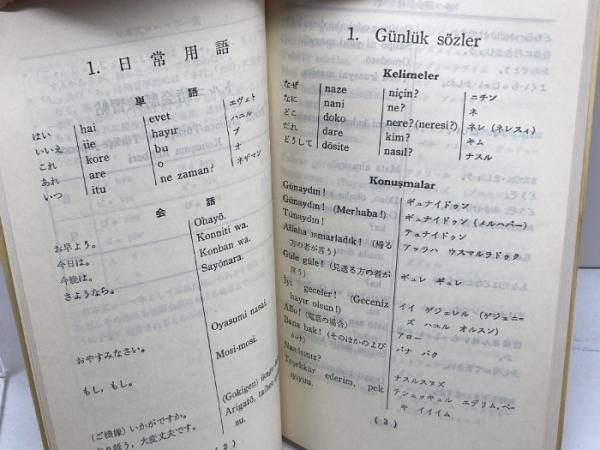 1. 日常用語
単語
はい hai evet エヴェト
いいえ iie hayır ハユル
これ kore bu ブ
あれ are o オ
いつ itu ne zaman? ネザマン
会話
お早よう。 Ohayô.
今日は。 Konniti wa.
今晩は。 Konban wa.
さようなら。 Sayônara.
おやすみなさい。 Oyasumi nasai.
もし，もし。 Mosi-mosi.
(ご機嫌) いかがですか。 (Gokigen)
大変丈夫です。 Arigatô,
su.
( 2 )
1. Günlük sözler
Kelimeler
なぜ naze niçin? ニチン
なに nani ne? ネ
どこ doko nere? (neresi?) ネレ (ネレスィ)
だれ dare kim? キム
どうして dôsite nasıl? ナスル
Konuşmalar
Günaydın! ギュナイドゥン
Günaydın! (Merhaba!) ギュナイドゥン (メルハバー)
Tünaydın! テュナイドゥン
Allaha ısmarladık! (帰る アッラハ ウスマルラドゥク
方の者が言う)
Güle güle! (見送る方の者が ギュレ ギュレ
言う)
İyi geceler! (Geceniz イイ ゲジェレル (ゲジェニー
hayır olsun!) ズ ハユル オルスン)
Allo! (電話の場合) アロー
Bana bak! (そのほかのよび バナ バク
かけ)
Nasılsınız? ナスルスヌズ
Teşekkür ederim, pek テシェッキュル エデリム，ペー
iyiyim. キ イイイム
( 3 )